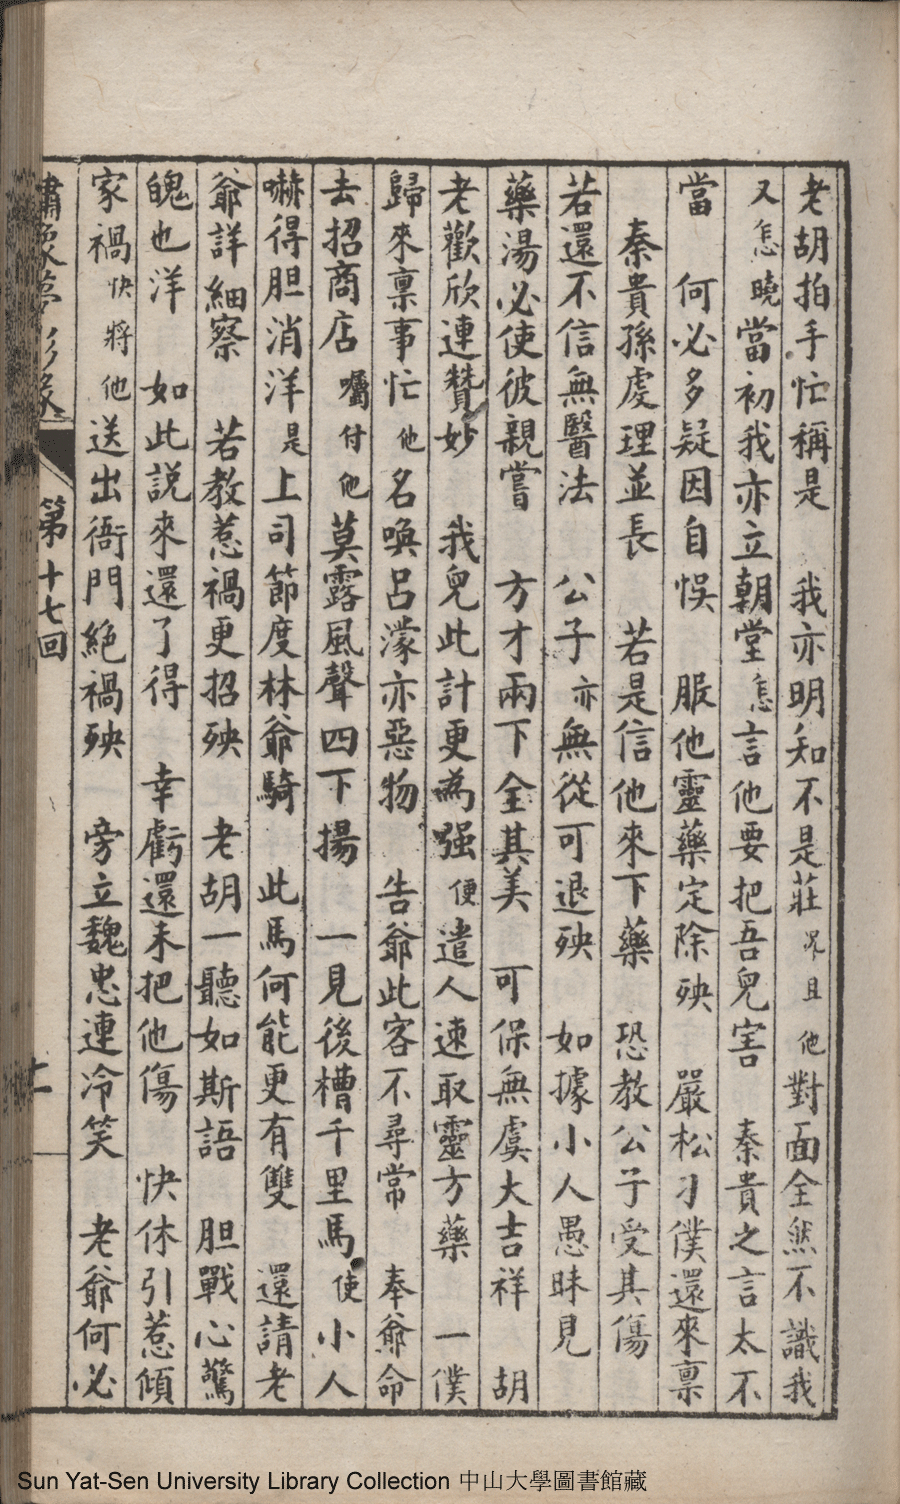 老胡拍手忙稱是　我亦明知不是莊況且他對面全然不識我
又怎曉當初我亦立朝堂怎言他要把吾兒害　秦貴之言太不
當　何必多疑因自悞　服他靈藥定除殃　嚴松刁僕還來禀
秦貴孫虔理並長　若是信他來下藥　恐教公子受其傷
若還不信無醫法　公子亦無從可退殃　如據小人愚昧見
藥湯必使彼親嘗　方才兩下全其美　可保無虞大吉祥　胡
老歡欣連贊妙　我兒此計更為强便遣人速取靈方藥　一僕
歸來禀事忙他名喚呂濛亦惡物　告爺此客不尋常　奉爺命
去招商店囑付他莫露風聲四下揚　一見後槽千里馬使小人
嚇得胆消洋是上司節度林爺騎　此馬何能更有雙　還請老
爺詳細察　若教惹禍更招殃　老胡一聽如斯語　胆戰心驚
魄也洋　如此説來還了得　幸虧還未把他傷　快休引惹傾
家禍快將他送出衙門絕禍殃　旁立魏忠連冷笑　老爺何必
繡像夢影緣
第十七回
十一
Sun Yat-Sen University Library Collection 中山大學圖書館藏